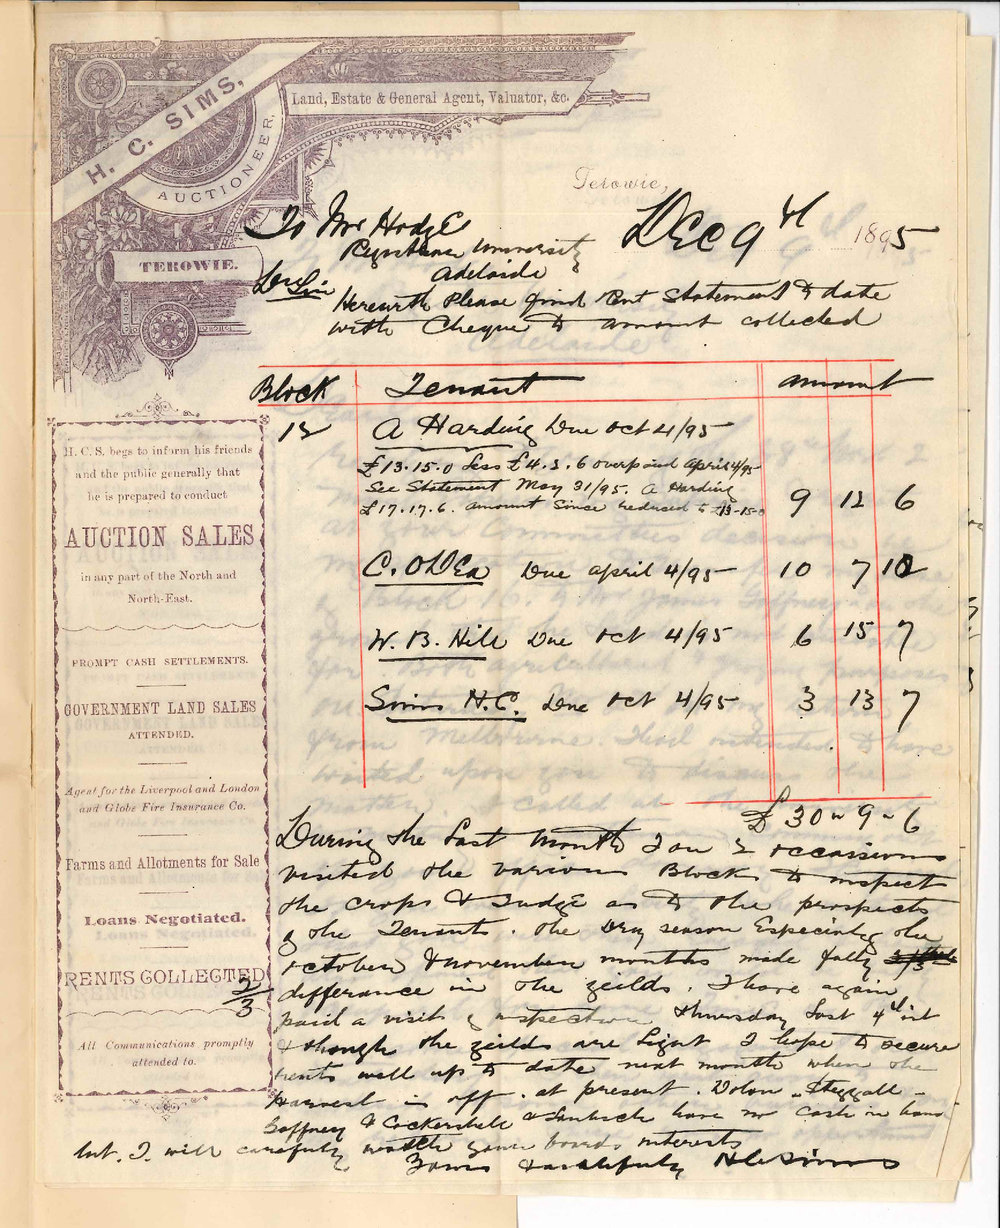 H. C. SIMS,
AUCTIONEER,
Land, Estate & General Agent, Valuator, &c.
TEROWIE.
Terowie,
Dec 9th 1895
To Mr Hodge
University
Adelaide
Dr Sir
Herewith Please find Rent Statement to date
with Cheque to amount collected
Block Tenant amount
12 A Harding Due Oct 4/95
£13.15.0 Less £4.2.6 overpaid April 4/95
See Statement May 31/95. A Harding
£17.17.6. amount Since reduced to £13-15-0 9 12 6
C. O'Dea Due april 4/95 10 7 10
W. B. Hill Due Oct 4/95 6 15 7
Sims H.C. Due Oct 4/95 3 13 7
£30 " 9 " 6
H. C. S. begs to inform his friends
and the public generally that
he is prepared to conduct
AUCTION SALES
in any part of the North and
North-East.
PROMPT CASH SETTLEMENTS.
GOVERNMENT LAND SALES
ATTENDED.
Agent for the Liverpool and London
and Globe Fire Insurance Co.
Farms and Allotments for Sale
Loans Negotiated.
RENTS COLLECTED
All Communications promptly
attended to.
During the Last Month I on 2 occassions
visited the various Blocks to inspect
the crops & Judge as to the prospects
of the Tenants. The Dry season Especially the
October & November months made fully
2/3 differance in the yeilds. I have again
paid a visit of inspection Thursday Last 4th inst
& though the yeilds are Light I hope to secure
rents well up to date next month when the
Harvest is off. at present. Dolan
Gaffney & Cockershell & have no cash in hand
but. I will carefully watch your boards interests
Yours faithfully H C Sims